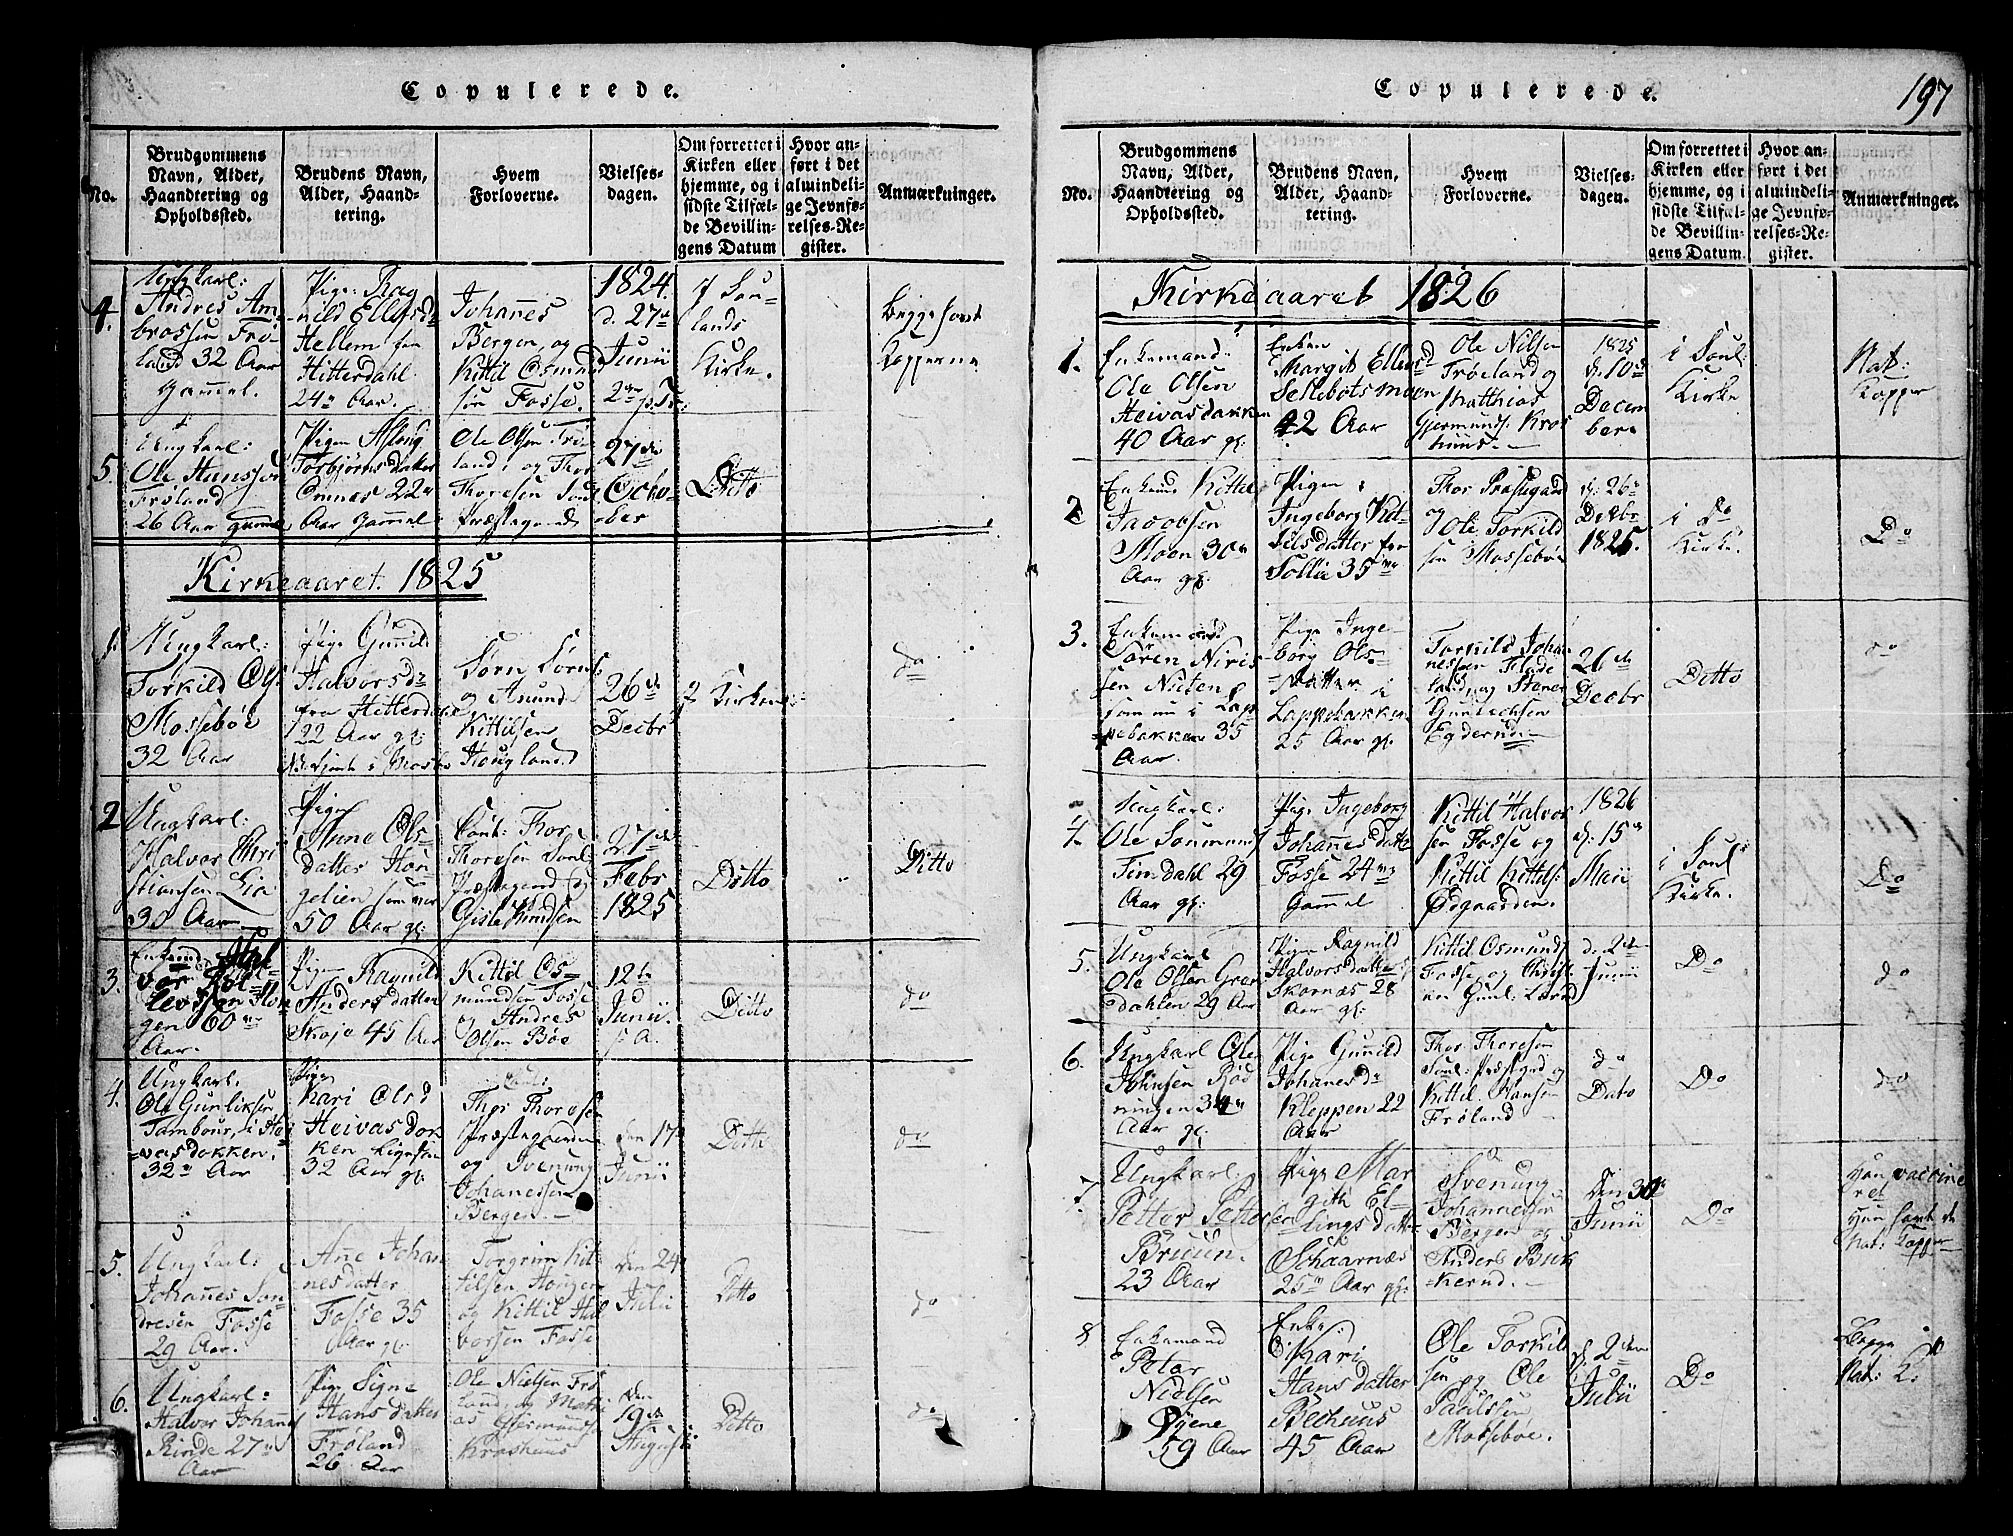 Copulerede.
No.
Brudgommens
Navn, Alder,
Haandtering og
Opholdssted.
Brudens Navn,
Alder, Haand-
tering.
Hvem
Forloverne.
Vielses-
dagen.
Om forrettet i
Kirken eller
hjemme, og i
sidste Tilfæl-
de Bevillin-
gens Datum
Hvor an-
ført i det
almindeli-
ge Jevnfø-
relses-Re-
gister.
Anmærkninger.
4.
Ungkarl:
Andres Am-
brossen Frø-
land 32 Aar
gammel.
Pige: Rag
nild Ellefsd
Hellem fra
Hitterdahl
24 Aar.
Johannes
Bergen, og
Kittil Osmund
sen Fosse.
1824.
d. 27de
Junii
J Sau-
lands
Kirke.
Begge havt
Kopperne
5.
Ungkarl:
Ole Hansen
Frøland
26 Aar gammel
Pigen Aslaug
Torbjørnsdatter
Omnæs 22
Aar gammel
Ole Olsen Frø-
land, og Thor
Thoresen Soul
Præstegaard
27de
Octo-
ber
Ditto
Kirkeaaret 1825
1.
Ungkarl:
Torkild Ols
Mossebøe
32 Aar
Pige Gunild
Halvorsdr
fra Hitterdahl
22 Aar gl:
Sørn Sørns
og Amund
Kittilsen
Hougland
26de
Decbr
J Kirken
do
2
Ungkarl:
Halvor Chri
stiansen Lia
30 Aar
Pige
Anne Ols-
datter Hou-
gelien
50 Aar gl:
Thor
Thoresen Soul
Præstegaard og
Gisle Knudsen
27de
Febr
1825
Ditto
Ditto
3.
Enkemd Hal-
vor Kol-
levsen Hou
gen 60
Aar.
Pige Ragnild
Andersdatter
Skoje 45 Aar
Kittil Os-
mundsen Fosse
og Andres
Olsen Bøe
12te
Junii.
Ditto
do
4.
Ungkarl.
Ole Gunliksen
Tambour, i Hei
vasdokken.
32 Aar
Pige
Kari Olsd
Heivasdok
ken ligesaa
32 Aar gl.
Thor Thoresen
Præstegaarden
og Svenung
Johanessen
Bergen.
den 17
Junii
Ditto
do
5.
Ungkarl:
Johannes Son-
dresen Fosse
29 Aar.
Ane Johan
nesdatter
Fosse 35
Aar gl.
Torgrim Kit-
tilsen Hougen
og Kittil Hal
vorsen Fosse
den 24
Julii
Ditto
do
6.
Ungkarl:
Halvor Johanes
Rinde 27
Aar
Pige Signe
Hansdatter
Frøland
26 Aar
Ole Nielsen Frø
land, og Mathi
as Gjermunds
Kroshuus
den
19de
Augusti
Ditto
do
Copulerede.
197
No.
Brudgommens
Navn, Alder,
Haandtering og
Opholdssted.
Brudens Navn,
Alder, Haand-
tering.
Hvem
Forloverne.
Vielses-
dagen.
Om forrettet i
Kirken eller
hjemme, og i
sidste Tilfæl-
de Bevillin-
gens Datum.
Hvor an-
ført i det
almindeli-
ge Jevnfø-
relses-Re-
gister.
Anmærkninger.
Kirkeaaret 1826
1.
Enkemand
Ole Olsen
Heivasdakken
40 Aar gl.
Enken
Margit Ellefsd
Sellebotsmoen
42 Aar
Ole Nilsen
Frøeland og
Matthias
Gjermunds. Kros
huus.
1825
d. 10de
Decem
ber.
i Soul:
Kirke
Nat:
Kopper
2
Enkemd Kittil
Jacobsen
Moen 30
Aar gl.
Pigen
Ingeborg Kit-
tilsdatter fra
Tollii 35
Thor Præstegaard
og
Ole Torkild
sen Mossebøe
d. 26
Decbr
1825.
i Do
Kirke.
Do
3.
Enkemand
Søren Niris
sen Nuten
som nu i Lap
pebakken 35
Aar.
Pige Inge-
borg Ols-
datter i
Lappebakken
25 Aar gl.
Torkild Johan
nessen Flade
land, og Stener
Gunlechsen
Egderud.
26de
Decbr
Ditto
do
4
Ungkarl:
Ole Soumund
Timdahl 29
Aar gl:
Pige Ingeborg
Johannesdatter
Fosse 24
Gammel
Kittil Halvor
sen Fosse og
Kittil Kittils:
Ødgaarden.
1826
d. 15
Maii
i Soul:
Kirke.
Do
5.
Ungkarl
Ole Olsen Gra-
dahlen 29 Aar
Pige Ragnild
Halvorsdatter
Skornæs 28
Aar gl:
Kittil Osmunds
Fosse og Christ-
en Gunl: Lærud
d. 2de
Junii
Do
do
6.
Ungkarl Ole
Johnsen Rød
ningen 34
Aar gl:
Pige Gunild
Johanesdr
Kleppen 22
Aar
Thor Thoresen
Soul: Præstgrd og
Kittil Hansen
Frøland
do
Dato
Do
do
7.
Ungkarl:
Petter Petter
sen Bruun.
23 Aar
Pige Mar
gith El-
lingsdatter
Schaarnæs
25 Aar gl.
Svenung
Johannessen
Bergen og
Anders Buk
kerud.
den 30
Junii
Do
Han vaccine
ret
Hun havt de
Nat: Kopper
8
Enkemand
Peter
Nielsen
Øyene
59 Aar
Enke:
Kari
Hansdatter
Bekhuus
45 Aar
Ole Torkild
sen og Ole
Paulssen
Mossebøe.
d. 2den
Julii
Do
Begge
Nat: K: